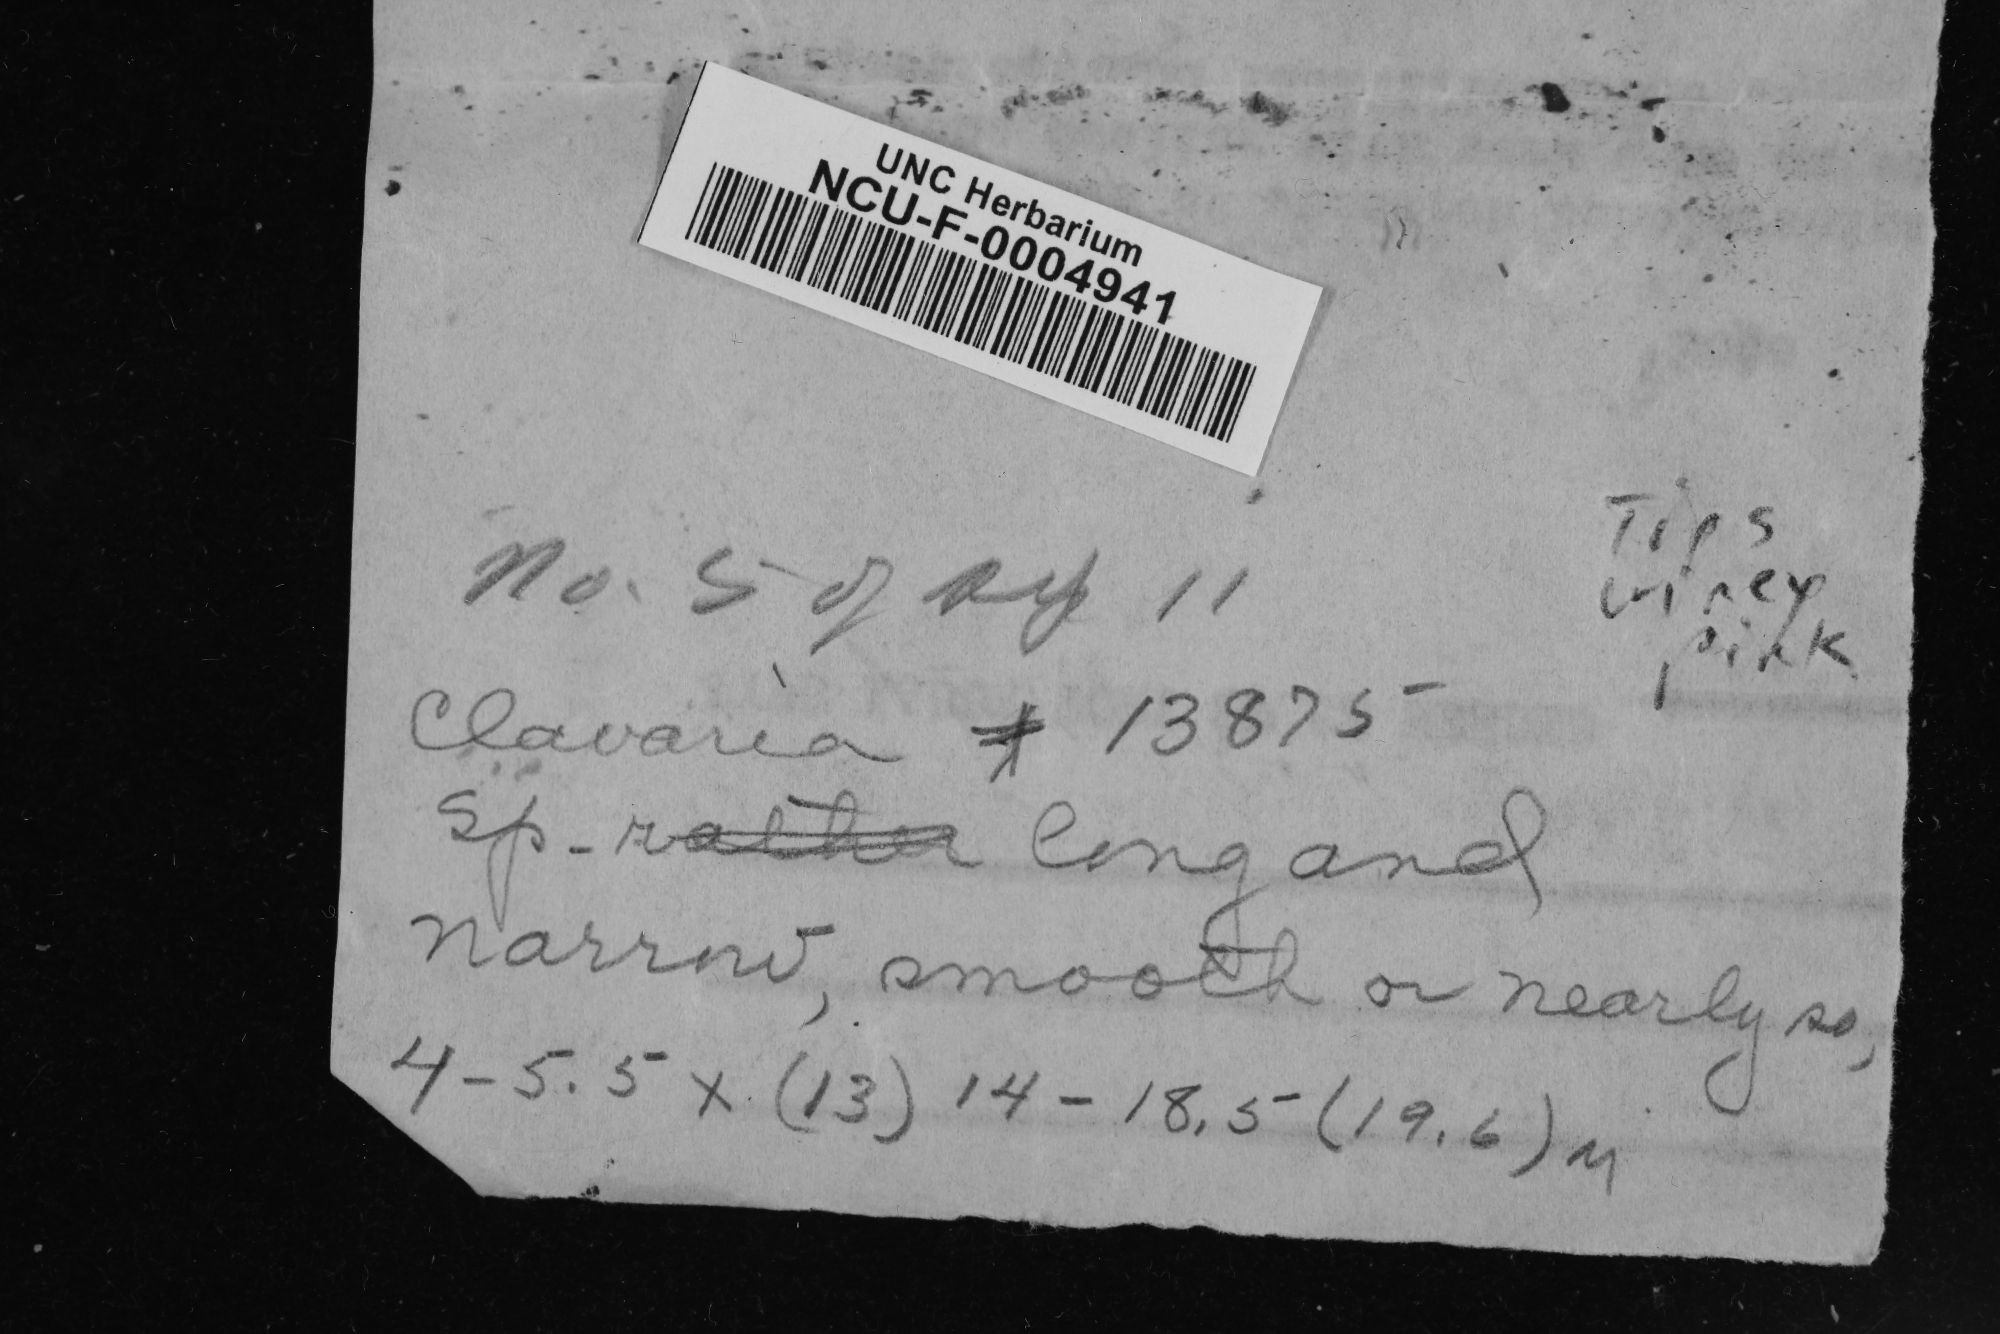 UNC Herbarium
NCU-F-0004941
No. 5 of Sep 11
Tips
winey
pink
Clavaria # 13875
Sp. - rather long and
narrow, smooth or nearly so,
4-5.5 x (13) 14-18.5 (19.6) µ